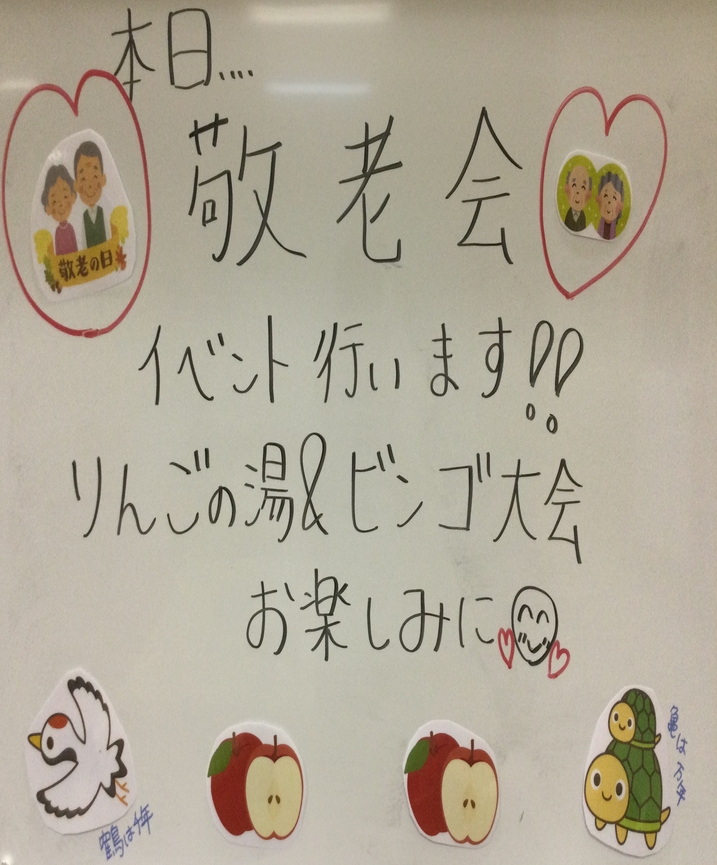 本日....
敬老会
敬老の日
イベント行います!!
りんごの湯&ビンゴ大会
お楽しみに
鶴は千年
亀は万年